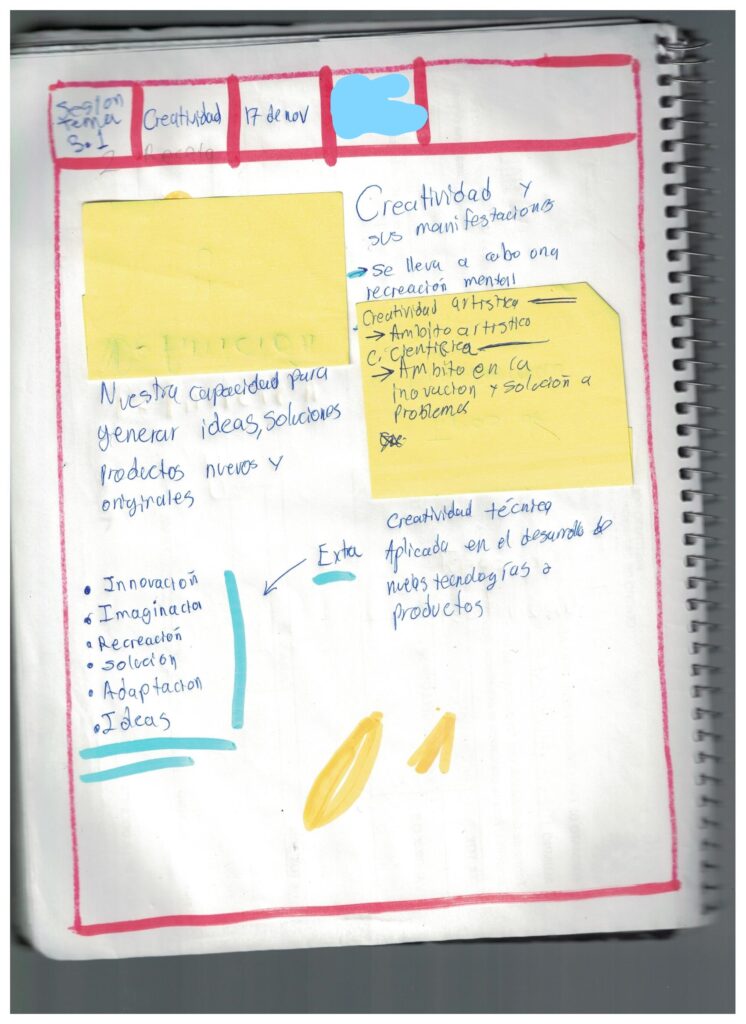 Sesion
tema
3.1
Creatividad
17 de nov
Nuestra capacidad para
generar ideas, soluciones
productos nuevos y
originales
Creatividad y
sus manifestaciones
→ Se lleva a cabo una
recreación mental
Creatividad artistica
→ Ambito artistico
C. Cientifica
→ Ambito en la
inovacion y solución a
problemas
Creatividad técnica
Aplicada en el desarrollo de
nuevas tecnologías a
productos
Extra
• Innovación
• Imaginacion
• Recreación
• solución
• Adaptacion
• Ideas